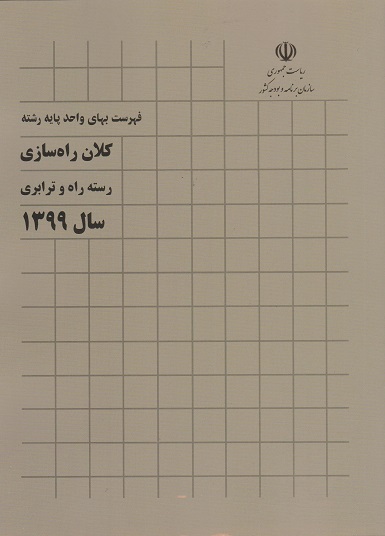 ریاست جمهوری
سازمان برنامه و بودجه کشور
فهرست بهای واحد پایه رشته
کلان راه‌سازی
رسته راه و ترابری
سال ۱۳۹۹